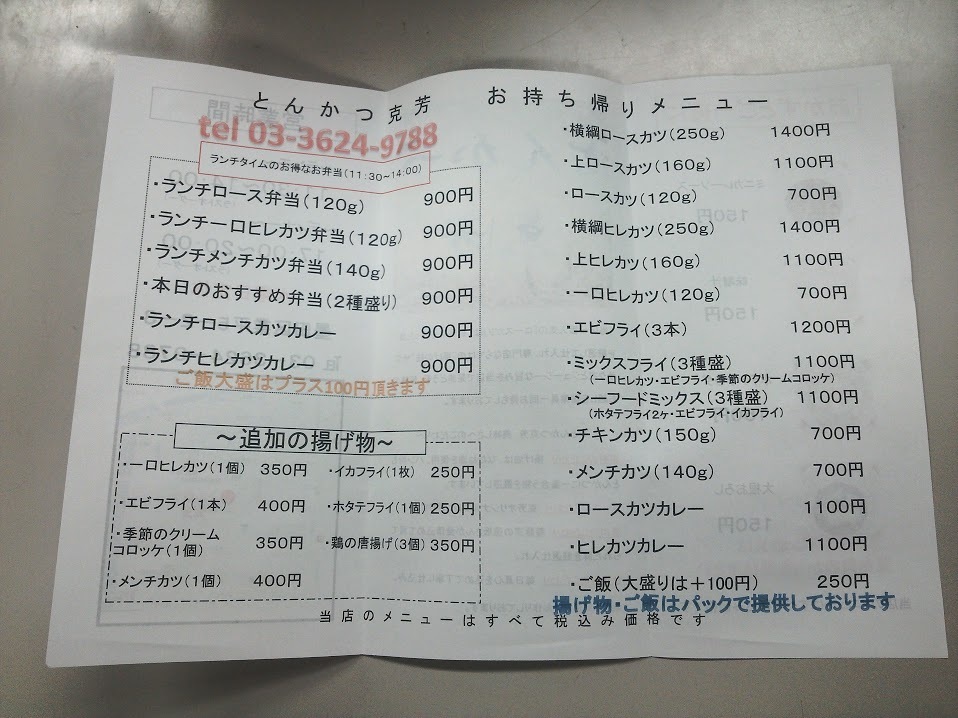 とんかつ克芳 お持ち帰りメニュー
tel 03-3624-9788
ランチタイムのお得なお弁当(11:30~14:00)
・ランチロース弁当(120g) 900円
・ランチ一口ヒレカツ弁当(120g) 900円
・ランチメンチカツ弁当(140g) 900円
・本日のおすすめ弁当(2種盛り) 900円
・ランチロースカツカレー 900円
・ランチヒレカツカレー 900円
ご飯大盛はプラス100円頂きます
~追加の揚げ物~
・一口ヒレカツ(1個) 350円
・エビフライ(1本) 400円
・季節のクリーム
コロッケ(1個) 350円
・メンチカツ(1個) 400円
・イカフライ(1枚) 250円
・ホタテフライ(1個) 250円
・鶏の唐揚げ(3個) 350円
・横綱ロースカツ(250g) 1400円
・上ロースカツ(160g) 1100円
・ロースカツ(120g) 700円
・横綱ヒレカツ(250g) 1400円
・上ヒレカツ(160g) 1100円
・一口ヒレカツ(120g) 700円
・エビフライ(3本) 1200円
・ミックスフライ(3種盛) 1100円
(一口ヒレカツ・エビフライ・季節のクリームコロッケ)
・シーフードミックス(3種盛) 1100円
(ホタテフライ2ヶ・エビフライ・イカフライ)
・チキンカツ(150g) 700円
・メンチカツ(140g) 700円
・ロースカツカレー 1100円
・ヒレカツカレー 1100円
・ご飯(大盛りは+100円) 250円
揚げ物・ご飯はパックで提供しております
当店のメニューはすべて税込み価格です